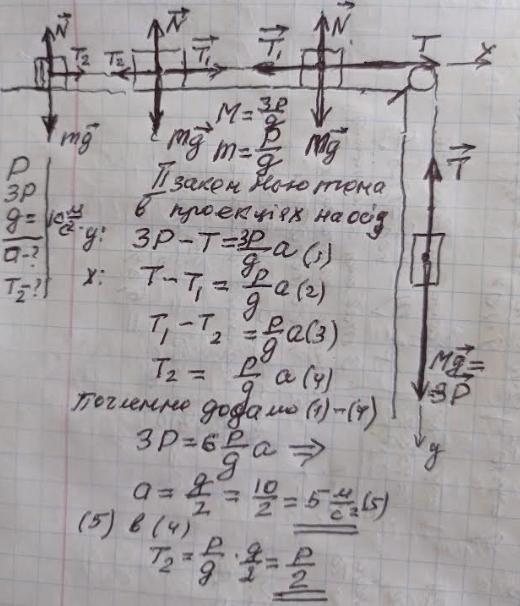 N⃗ N⃗ N⃗
T₂ T₂ T⃗₁ T⃗₁ T x
mg⃗ mg⃗ Mg⃗
M = 3P/g
m = P/g
T⃗
P
3P
g = 10 м/с²
a-?
T₂-?
II закон Ньютона
в проекціях на осі
y: 3P - T = 3P/g a (1)
x: T - T₁ = P/g a (2)
T₁ - T₂ = P/g a (3)
T₂ = P/g a (4)
Mg⃗ =
= 3P⃗
y
почленно додамо (1)-(4)
3P = 6 P/g a ⇒
a = g/2 = 10/2 = 5 м/с² (5)
(5) в (4)
T₂ = P/g · g/2 = P/2